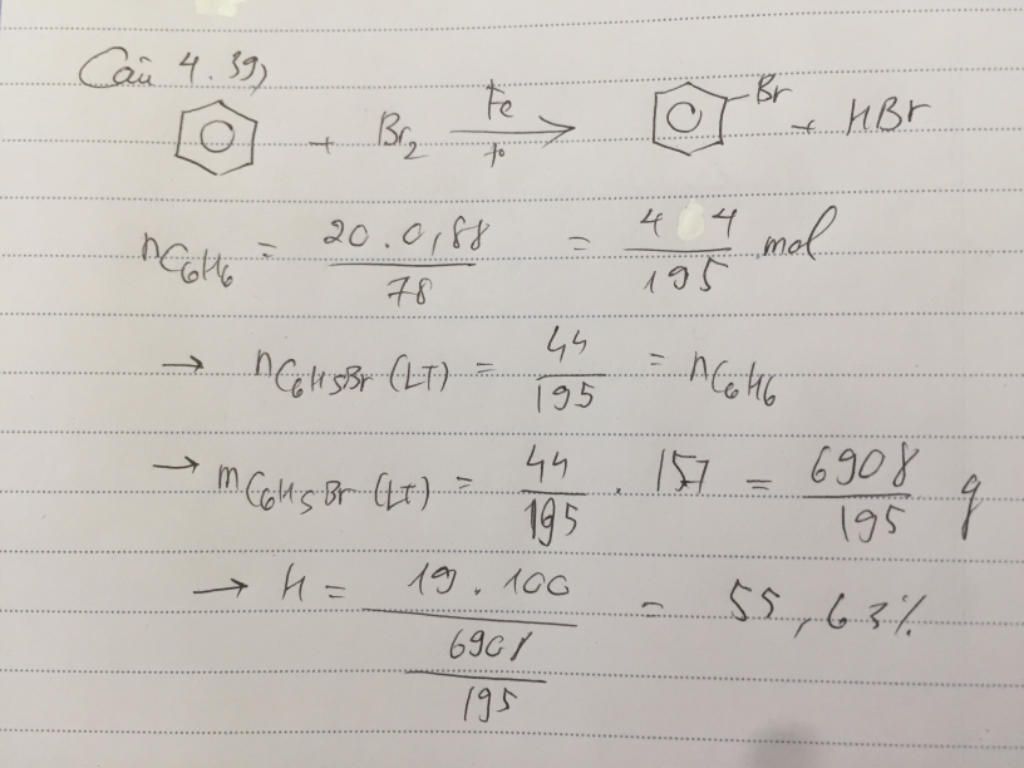 Câu 4.39)
+ Br₂ Fe t° → Br + HBr
nC₆H₆ = 20.0,88 / 78 = 44 / 195 mol
→ nC₆H₅Br (LT) = 44 / 195 = nC₆H₆
→ mC₆H₅Br (LT) = 44 / 195 . 157 = 6908 / 195 g
→ H = 19.100 / 6908 / 195 = 55,63%